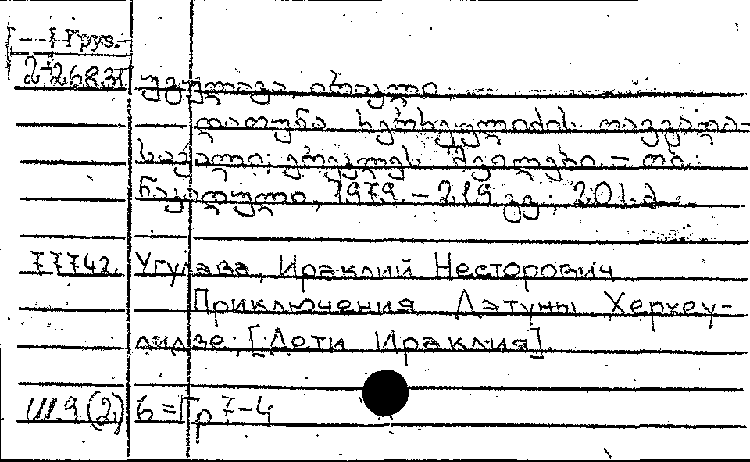 Груз.
2-2683
უგულავა ირაკლი
დათუნა ხერხეულიძის თავგადა-
სავალი;
ნაკადული, 1979. - 219 გვ.;
77742. Угулава, Ираклий Несторович
Приключения Дэтуны Херхеу-
лидзе; [Дэти Ираклия].
Ш.9(2)6=Гр 7-4